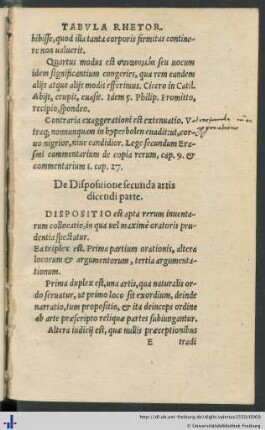 TABVLA RHETOR.
bibisse, quod illa tanta corporis firmitas contine
re non ualuerit.
Quartus modus est συνωνυμία seu uocum
idem significantium congeries, qua rem eandem
alijs atque alijs modis efferimus. Cicero in Catil.
Abijt, erupit, euasit. Idem 5. Philip. Promitto,
recipio, spondeo.
Contraria exaggerationi est extenuatio. V-
traq; nonnunquam in hyperbolen euadit: ut, cor-
uo nigrior, niue candidior. Lege secundum Eras
smi commentarium de copia rerum, cap. 9. &
commentarium 1. cap. 27.
De Dispositione secunda artis
dicendi parte.
DISPOSITIO est apta rerum inuenta-
rum collocatio, in qua uel maxime oratoris pru
dentia spectatur.
Ea triplex est. Prima partium orationis, altera
locorum & argumentorum, tertia argumenta-
tionum.
Prima duplex est, una artis, qua naturalis or-
do seruatur, ut primo loco sit exordium, deinde
narratio, tum propositio, & ita deinceps ordine
ab arte præscripto reliquæ partes subiungantur.
Altera iudicij est, quæ nullis præceptionibus
E tradi
http://dl.ub.uni-freiburg.de/diglit/valerius1559/0069
© Universitätsbibliothek Freiburg